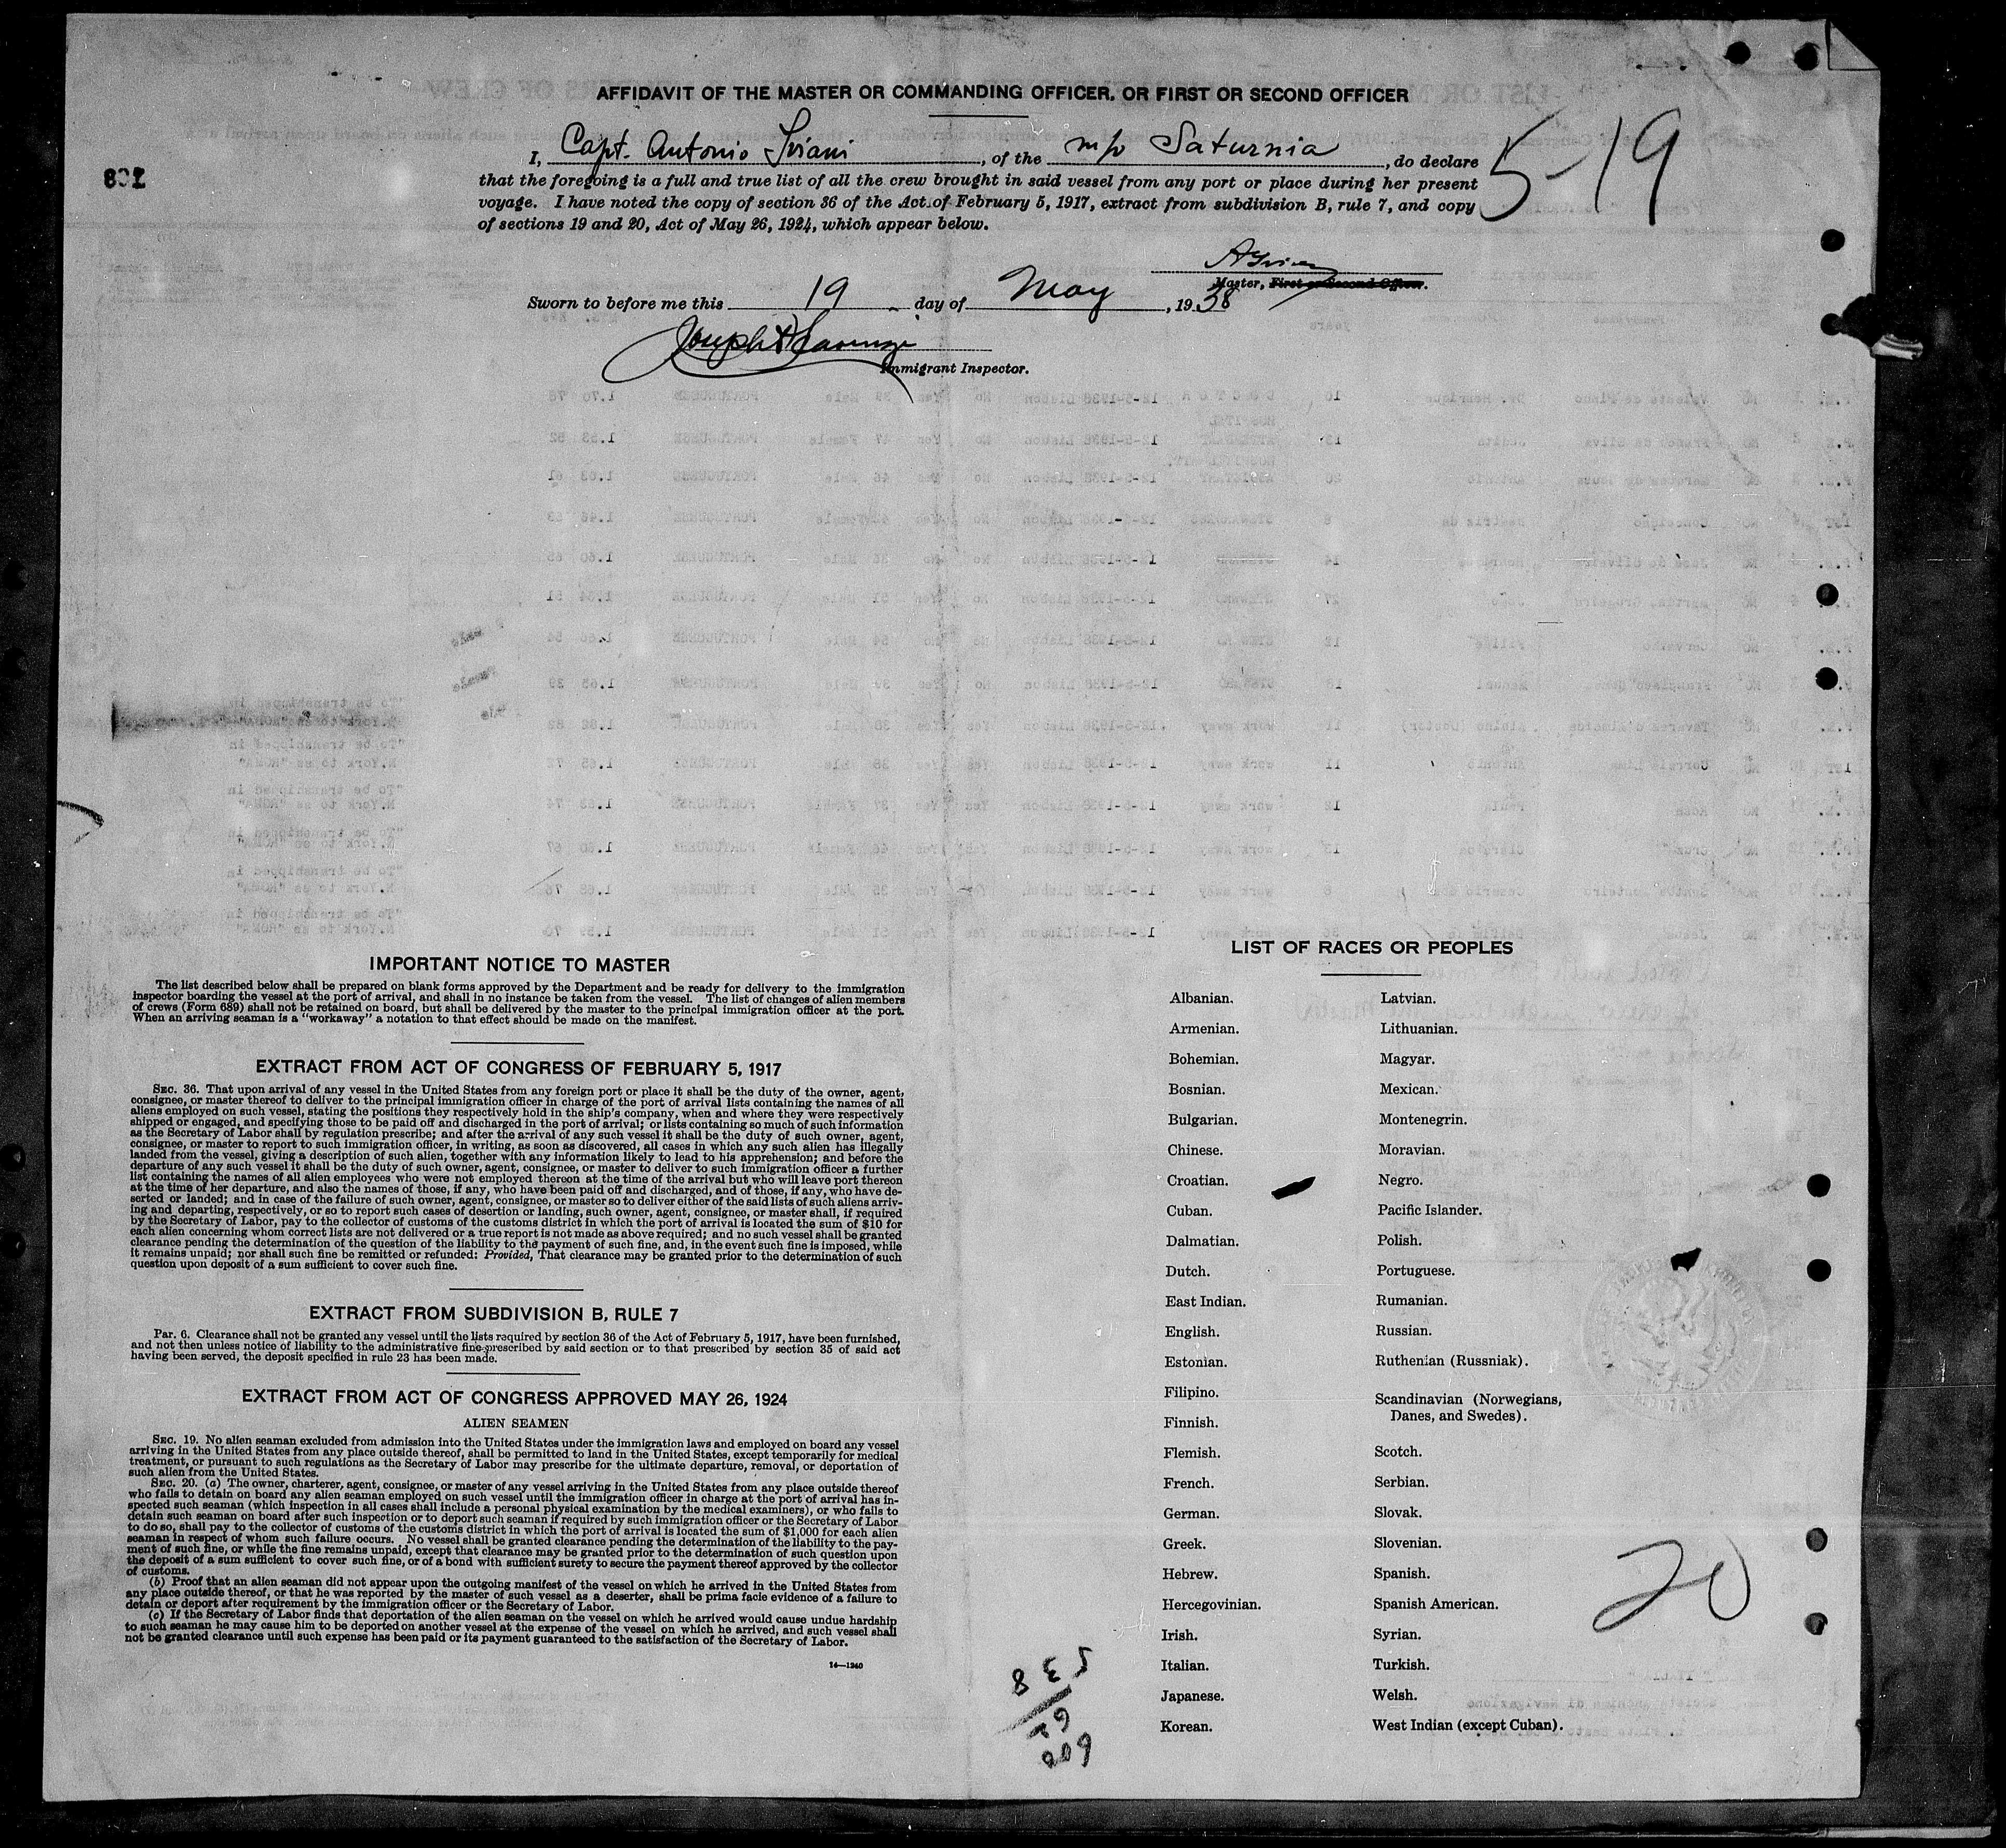 AFFIDAVIT OF THE MASTER OR COMMANDING OFFICER, OR FIRST OR SECOND OFFICER
I, Capt. Antonio, of the Saturnia, do declare
5-19
that the foregoing is a full and true list of all the crew brought in said vessel from any port or place during her present
voyage. I have noted the copy of section 36 of the Act of February 5, 1917, extract from subdivision B, rule 7, and copy
of sections 19 and 20, Act of May 26, 1924, which appear below.
Master, First or Second Officer.
Sworn to before me this 19 day of May, 1938
Joseph
Immigrant Inspector.
IMPORTANT NOTICE TO MASTER
The list described below shall be prepared on blank forms approved by the Department and be ready for delivery to the immigration
inspector boarding the vessel at the port of arrival, and shall in no instance be taken from the vessel. The list of changes of alien members
of crews (Form 689) shall not be retained on board, but shall be delivered by the master to the principal immigration officer at the port.
When an arriving seaman is a "workaway" a notation to that effect should be made on the manifest.
EXTRACT FROM ACT OF CONGRESS OF FEBRUARY 5, 1917
SEC. 36. That upon arrival of any vessel in the United States from any foreign port or place it shall be the duty of the owner, agent,
consignee, or master thereof to deliver to the principal immigration officer in charge of the port of arrival lists containing the names of all
aliens employed on such vessel, stating the positions they respectively hold in the ship's company, when and where they were respectively
shipped or engaged, and specifying those to be paid off and discharged in the port of arrival; or lists containing so much of such information
as the Secretary of Labor shall by regulation prescribe; and after the arrival of any such vessel it shall be the duty of such owner, agent,
consignee, or master to report to such immigration officer, in writing, as soon as discovered, all cases in which any such alien has illegally
landed from the vessel, giving a description of such alien, together with any information likely to lead to his apprehension; and before the
departure of any such vessel it shall be the duty of such owner, agent, consignee, or master to deliver to such immigration officer a further
list containing the names of all alien employees who were not employed thereon at the time of the arrival but who will leave port thereon
at the time of her departure, and also the names of those, if any, who have been paid off and discharged, and of those, if any, who have de-
serted or landed; and in case of the failure of such owner, agent, consignee, or master so to deliver either of the said lists of such aliens arriv-
ing and departing, respectively, or so to report such cases of desertion or landing, such owner, agent, consignee, or master shall, if required
by the Secretary of Labor, pay to the collector of customs of the customs district in which the port of arrival is located the sum of $10 for
each alien concerning whom correct lists are not delivered or a true report is not made as above required; and no such vessel shall be granted
clearance pending the determination of the question of the liability to the payment of such fine, and, in the event such fine is imposed, while
it remains unpaid; nor shall such fine be remitted or refunded: Provided, That clearance may be granted prior to the determination of such
question upon deposit of a sum sufficient to cover such fine.
EXTRACT FROM SUBDIVISION B, RULE 7
Par. 6. Clearance shall not be granted any vessel until the lists required by section 36 of the Act of February 5, 1917, have been furnished,
and not then unless notice of liability to the administrative fine prescribed by said section or to that prescribed by section 35 of said act
having been served, the deposit specified in rule 23 has been made.
EXTRACT FROM ACT OF CONGRESS APPROVED MAY 26, 1924
ALIEN SEAMEN
SEC. 19. No alien seaman excluded from admission into the United States under the immigration laws and employed on board any vessel
arriving in the United States from any place outside thereof, shall be permitted to land in the United States, except temporarily for medical
treatment, or pursuant to such regulations as the Secretary of Labor may prescribe for the ultimate departure, removal, or deportation of
such alien from the United States.
SEC. 20. (a) The owner, charterer, agent, consignee, or master of any vessel arriving in the United States from any place outside thereof
who fails to detain on board any alien seaman employed on such vessel until the immigration officer in charge at the port of arrival has in-
spected such seaman (which inspection in all cases shall include a personal physical examination by the medical examiners), or who fails to
detain such seaman on board after such inspection or to deport such seaman if required by such immigration officer or the Secretary of Labor
to do so, shall pay to the collector of customs of the customs district in which the port of arrival is located the sum of $1,000 for each alien
seaman in respect of whom such failure occurs. No vessel shall be granted clearance pending the determination of the liability to the pay-
ment of such fine, or while the fine remains unpaid, except that clearance may be granted prior to the determination of such question upon
the deposit of a sum sufficient to cover such fine, or of a bond with sufficient surety to secure the payment thereof approved by the collector
of customs.
(b) Proof that an alien seaman did not appear upon the outgoing manifest of the vessel on which he arrived in the United States from
any place outside thereof, or that he was reported by the master of such vessel as a deserter, shall be prima facie evidence of a failure to
detain or deport after requirement by the immigration officer or the Secretary of Labor.
(c) If the Secretary of Labor finds that deportation of the alien seaman on the vessel on which he arrived would cause undue hardship
to such seaman he may cause him to be deported on another vessel at the expense of the vessel on which he arrived, and such vessel shall
not be granted clearance until such expense has been paid or its payment guaranteed to the satisfaction of the Secretary of Labor.
14—1240
LIST OF RACES OR PEOPLES
Albanian.
Armenian.
Bohemian.
Bosnian.
Bulgarian.
Chinese.
Croatian.
Cuban.
Dalmatian.
Dutch.
East Indian.
English.
Estonian.
Filipino.
Finnish.
Flemish.
French.
German.
Greek.
Hebrew.
Hercegovinian.
Irish.
Italian.
Japanese.
Korean.
Latvian.
Lithuanian.
Magyar.
Mexican.
Montenegrin.
Moravian.
Negro.
Pacific Islander.
Polish.
Portuguese.
Rumanian.
Russian.
Ruthenian (Russniak).
Scandinavian (Norwegians,
Danes, and Swedes).
Scotch.
Serbian.
Slovak.
Slovenian.
Spanish.
Spanish American.
Syrian.
Turkish.
Welsh.
West Indian (except Cuban).
20